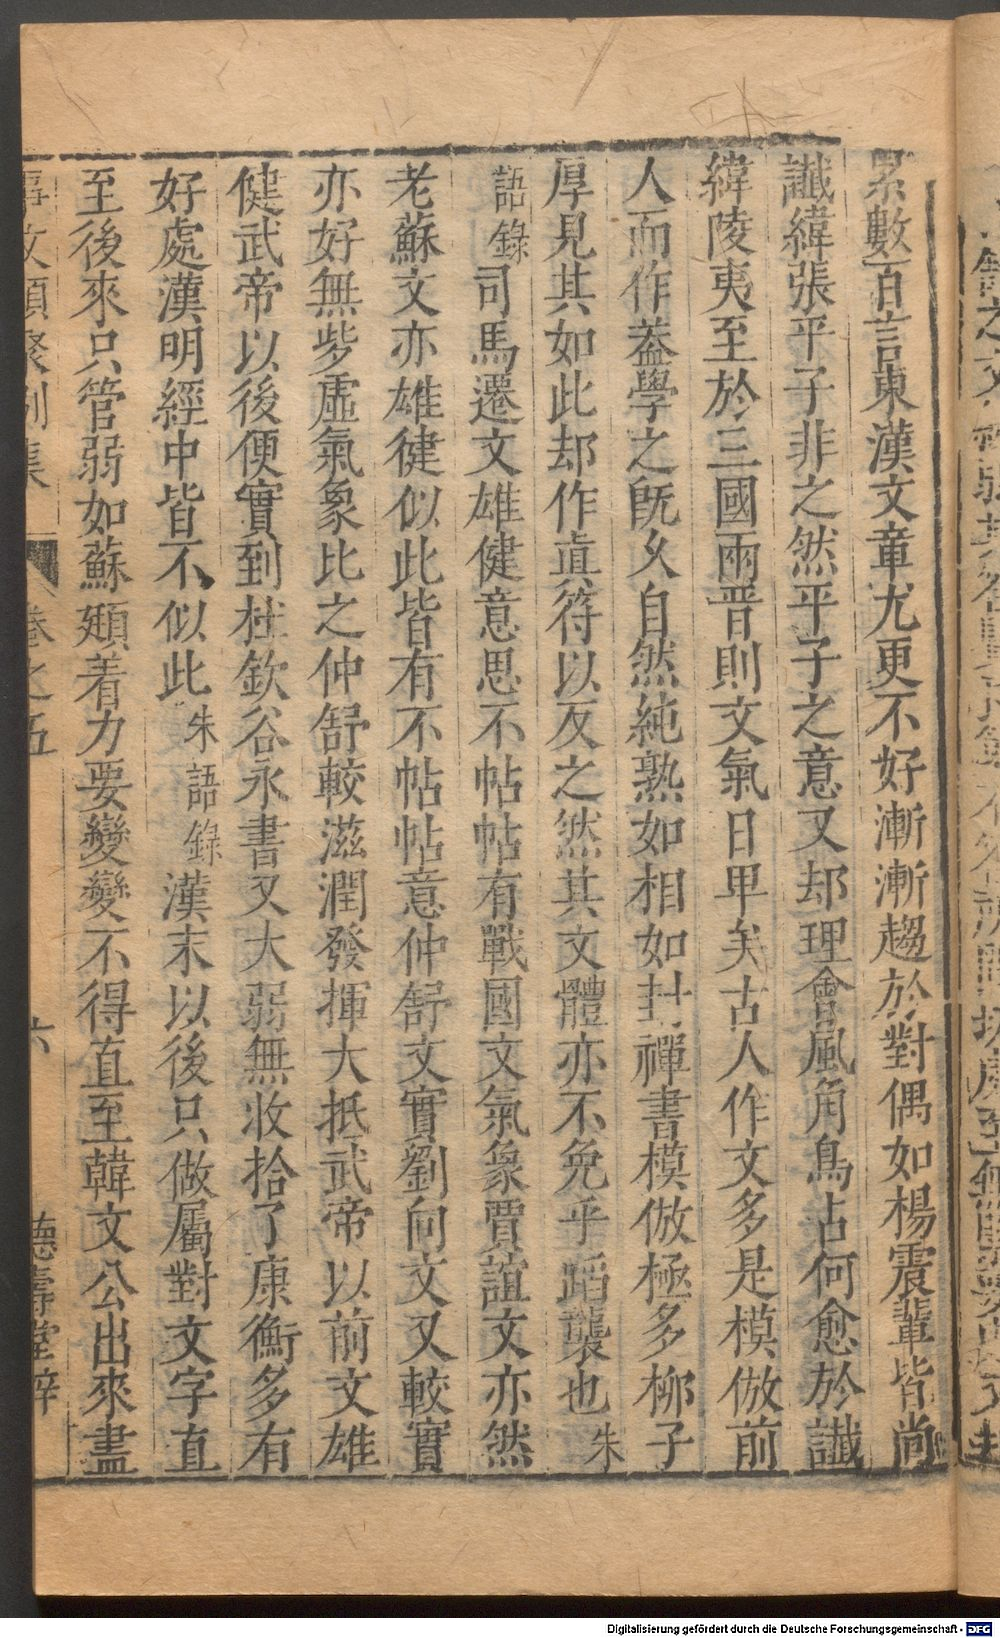 累數百言東漢文章尤更不好漸漸趨於對偶如楊震輩皆尚
讖緯張平子非之然平子之意又却理會風角鳥占何愈於讖
緯陵夷至於三國兩晋則文氣日卑矣古人作文多是模倣前
人而作蓋學之既久自然純熟如相如封禪書模倣極多柳子
厚見其如此却作貞符以反之然其文體亦不免乎蹈襲也朱
語錄司馬遷文雄健意思不帖帖有戰國文氣象賈誼文亦然
老蘇文亦雄健似此皆有不帖帖意仲舒文實劉向文又較實
亦好無些虛氣象比之仲舒較滋潤發揮大抵武帝以前文雄
健武帝以後便實到杜欽谷永書又大弱無收拾了康衡多有
好處漢明經中皆不似此朱語錄漢末以後只做屬對文字直
至後來只管弱如蘇頲着力要變變不得直至韓文公出來盡
事文類聚別集 卷之五 六 德壽堂梓
Digitalisierung gefördert durch die Deutsche Forschungsgemeinschaft - DFG